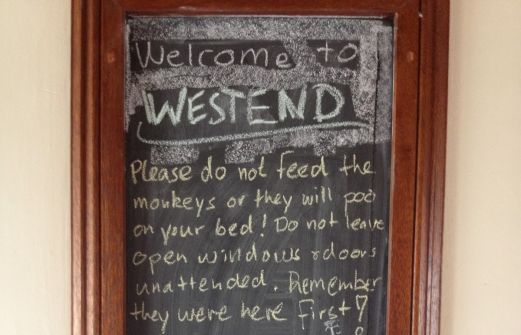 Welcome to
WESTEND
Please do not feed the
monkeys or they will poo
on your bed! Do not leave
open windows &doors
unattended. Remember
they were here first!